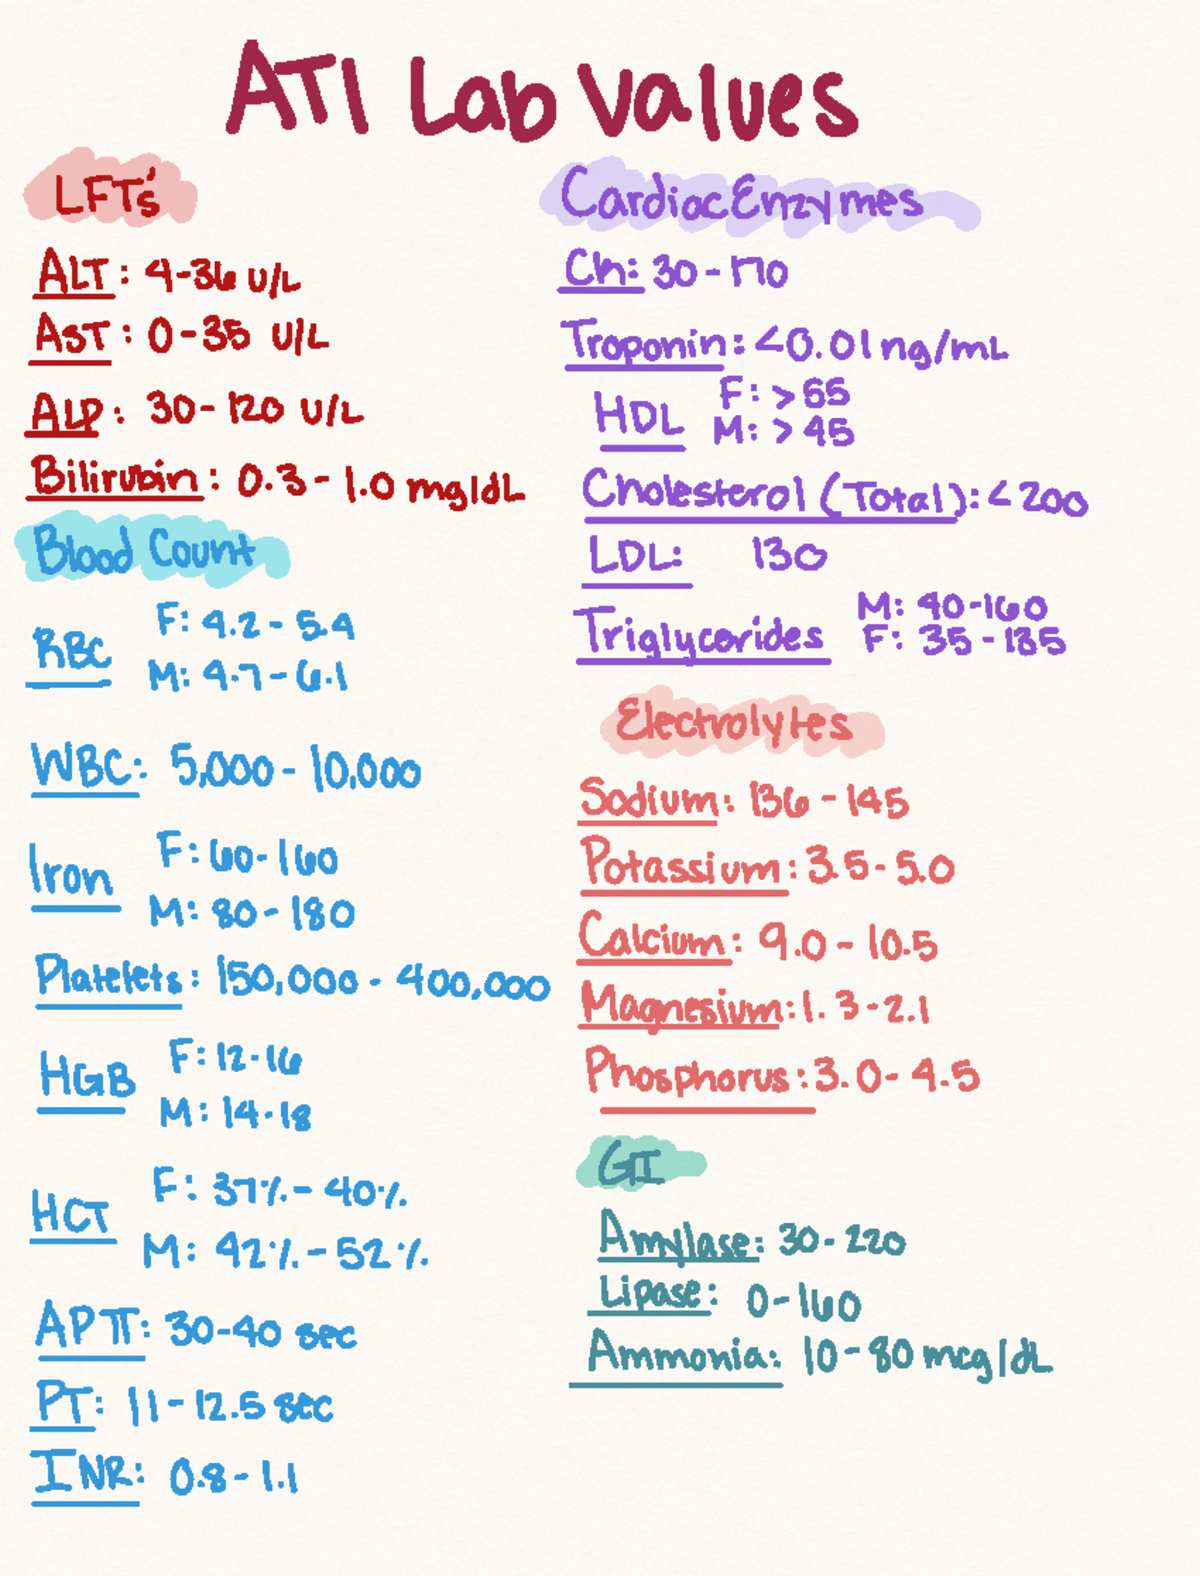 ATI Lab Values
LFT's
ALT: 4-36 U/L
AST: 0-35 U/L
ALP: 30-120 U/L
Bilirubin: 0.3-1.0 mg/dL
Blood Count
RBC
F: 4.2-5.4
M: 4.7-6.1
WBC: 5,000-10,000
Iron
F: 60-160
M: 80-180
Platelets: 150,000-400,000
HGB
F: 12-16
M: 14-18
HCT
F: 37%-40%
M: 42%-52%
APTT: 30-40 sec
PT: 11-12.5 sec
INR: 0.8-1.1
Cardiac Enzymes
: 30-170
Troponin: <0.01 ng/mL
HDL
F: >55
M: >45
Cholesterol (Total): <200
LDL: 130
Triglycerides
M: 40-160
F: 35-135
Electrolytes
Sodium: 136-145
Potassium: 3.5-5.0
Calcium: 9.0-10.5
Magnesium: 1.3-2.1
Phosphorus: 3.0-4.5
GI
Amylase: 30-220
Lipase: 0-160
Ammonia: 10-80 mcg/dL